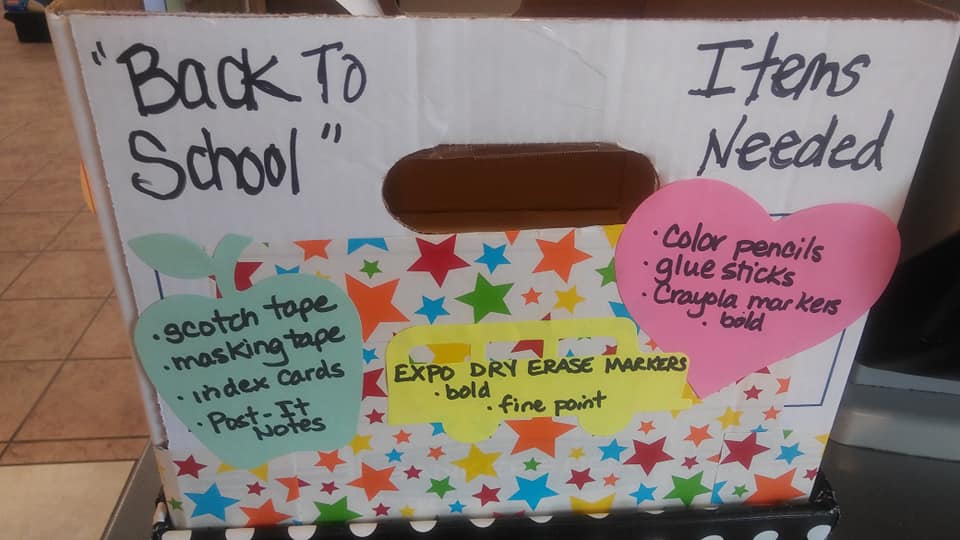 "Back To
School"
Items
Needed
· scotch tape
· masking tape
· index cards
· Post-It
Notes
EXPO DRY ERASE MARKERS
· bold
· fine point
· Color pencils
· glue sticks
· Crayola markers
· bold